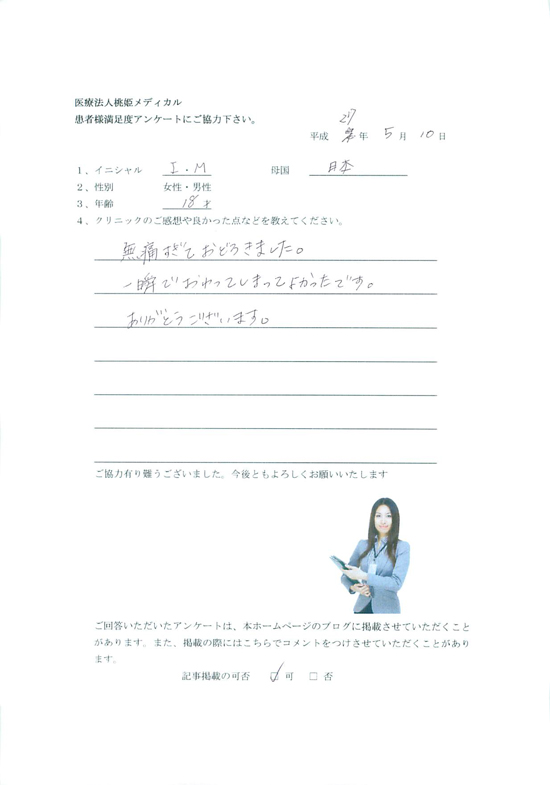 医療法人桃姫メディカル
患者様満足度アンケートにご協力下さい。
平成 27 年 5 月 10 日
1、イニシャル I・M 母国 日本
2、性別 女性・男性
3、年齢 18才
4、クリニックのご感想や良かった点などを教えてください。
無痛すぎておどろきました。
一瞬でおわってしまってよかったです。
ありがとうございます。
ご協力有り難うございました。今後ともよろしくお願いいたします
ご回答いただいたアンケートは、本ホームページのブログに掲載させていただくこと
があります。また、掲載の際にはこちらでコメントをつけさせていただくことがあり
ます。
記事掲載の可否 ☑ 可 □ 否